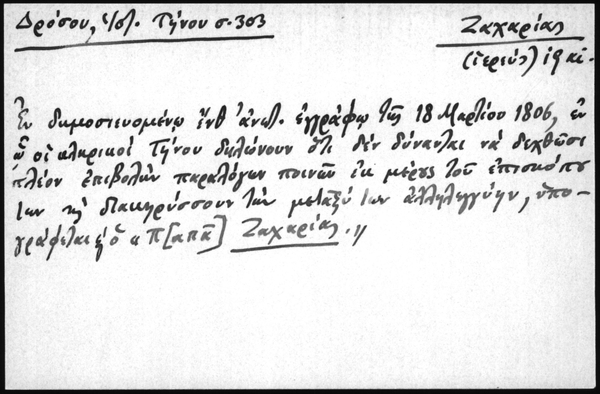 Δρόσου, Ἱστ. Τήνου σ. 303
Ζαχαρίας
(ἱερεύς) 19 αἰ.
Ἐν δημοσιευομένῳ ἔνθ' ἀνωτ. ἐγγράφῳ τῆς 18 Μαρτίου 1806, ἐν
ᾧ οἱ κληρικοί Τήνου δηλώνουν ὅτι δέν δύνανται νά δεχθῶσι
πλέον ἐπιβολήν παραλόγων ποινῶν ἐκ μέρους τοῦ ἐπισκόπου
των κ διακηρύσσουν τήν μεταξύ των ἀλληλεγγύην, ὑπο-
γράφεται ὁ π[απᾶ] Ζαχαρίας.